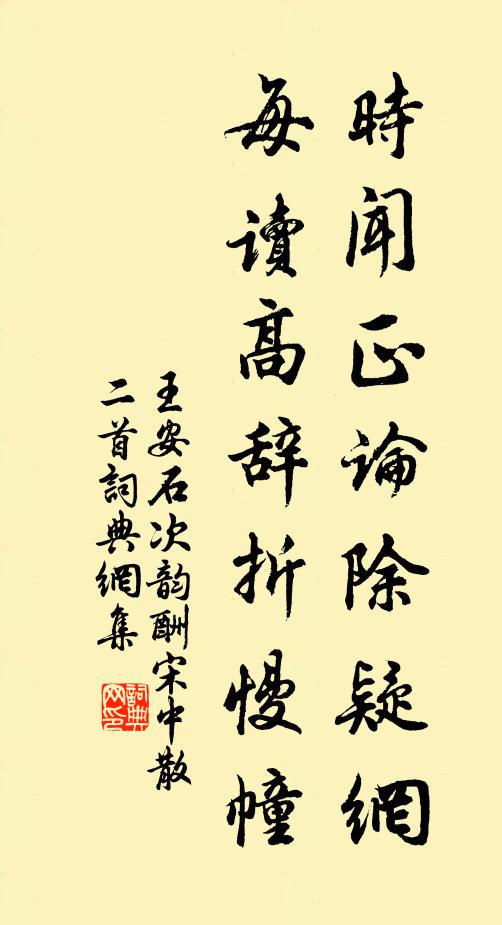 時聞正論除疑網
每读高辞折慢幢
王安石次韵酬宋中散
二首詞典網集
詞典
网印